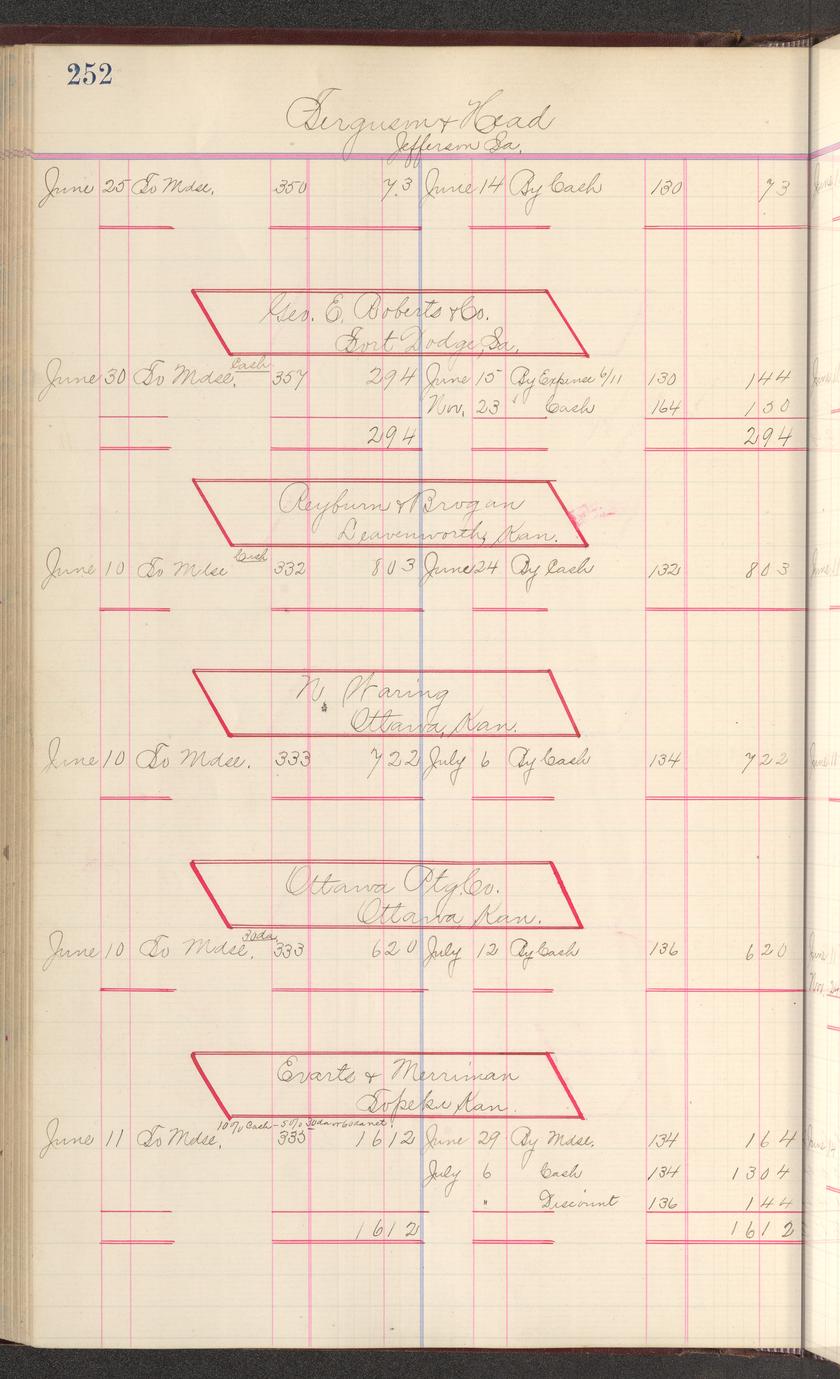 252
Ferguson & Head
Jefferson Ia.
June 25 To Mdse. 350 73 June 14 By Cash 130 73
Geo. E. Roberts & Co.
Fort Dodge, Ia.
June 30 To Mdse. Cash 357 294 June 15 By Expense 6/11 130 144
Nov. 23 " Cash 164 150
294 294
Reyburn & Brogan
Leavenworth, Kan.
June 10 To Mdse Cash 332 803 June 24 By Cash 132 803
N. Waring
Ottawa, Kan.
June 10 To Mdse. 333 722 July 6 By Cash 134 722
Ottawa Ptg. Co.
Ottawa, Kan.
June 10 To Mdse. 30 da. 333 620 July 12 By Cash 136 620
Evarts & Merriman
Topeka Kan.
10% Cash - 5% 30 da or 60 da net.
June 11 To Mdse. 335 1612 June 29 By Mdse. 134 164
July 6 Cash 134 1304
" Discount 136 144
1612 1612